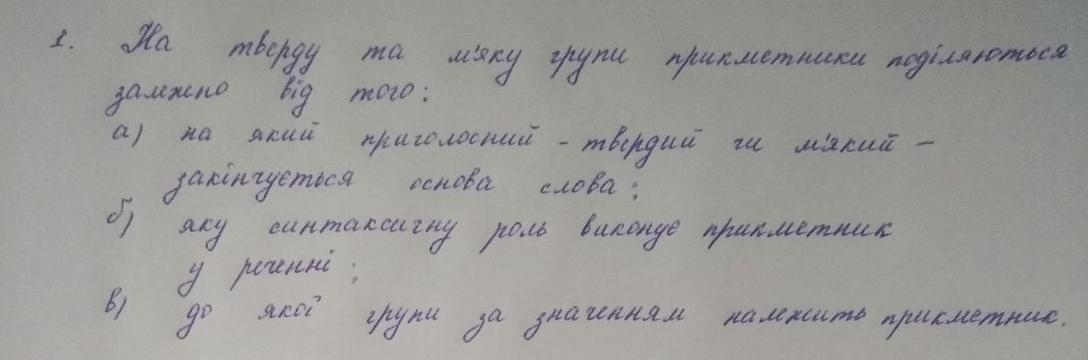 1. На тверду та м'яку групи прикметники поділяються
залежно від того:
а) на який приголосний - твердий чи м'який -
закінчується основа слова;
б) яку синтаксичну роль виконує прикметник
у реченні;
в) до якої групи за значенням належить прикметник.